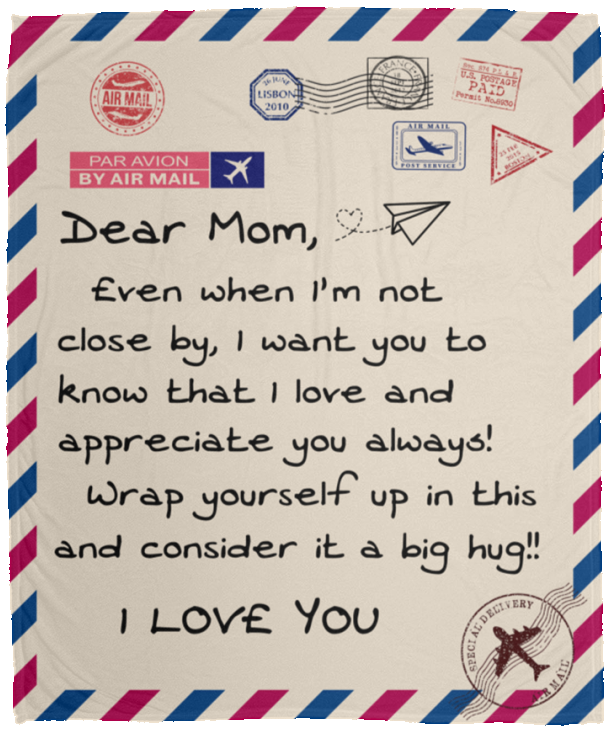 AIR MAIL
26 JUNE
LISBON
2010
FRANCE
U.S. POSTAGE
PAID
Permit No.8930
AIR MAIL
POST SERVICE
PAR AVION
BY AIR MAIL
Dear Mom,
Even when I'm not
close by, I want you to
know that I love and
appreciate you always!
Wrap yourself up in this
and consider it a big hug!!
I LOVE YOU
SPECIAL DELIVERY
AIR MAIL